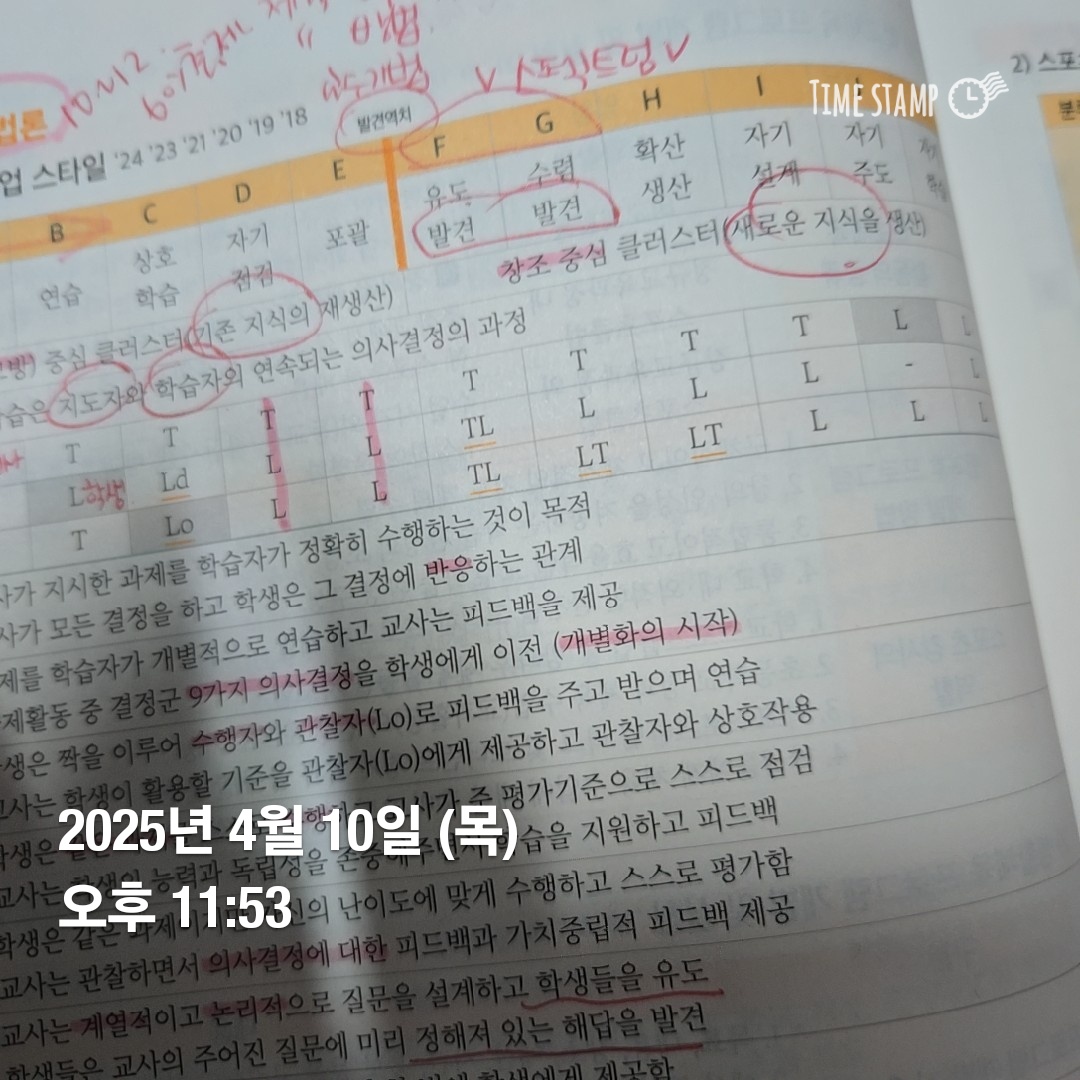 10시 2
60%결제
비법
V 스펙트럼 V
TIME STAMP
2) 스포
업 스타일 '24 '23 '21 '20 '19 '18
발견역치
B C D E F G H I
연습 상호 학습 자기 점검 포괄 유도 발견 수렴 발견 확산 생산 자기 설계 자기 주도
중심 클러스터(기존 지식의 재생산) 창조 중심 클러스터(새로운 지식을 생산)
습은 지도자와 학습자의 연속되는 의사결정의 과정
T T T T T T T T L L
L학생 Ld L L TL L L L - L
T Lo L L TL LT LT L L L
사가 지시한 과제를 학습자가 정확히 수행하는 것이 목적
사가 모든 결정을 하고 학생은 그 결정에 반응하는 관계
제를 학습자가 개별적으로 연습하고 교사는 피드백을 제공
제활동 중 결정군 9가지 의사결정을 학생에게 이전 (개별화의 시작)
생은 짝을 이루어 수행자와 관찰자(Lo)로 피드백을 주고 받으며 연습
교사는 학생이 활용할 기준을 관찰자(Lo)에게 제공하고 관찰자와 상호작용
학생은 교사가 준 평가기준으로 스스로 점검
교사는 학생의 능력과 독립성을 존중해주며 학습을 지원하고 피드백
학생은 같은 과제 난이도에 맞게 수행하고 스스로 평가함
교사는 관찰하면서 의사결정에 대한 피드백과 가치중립적 피드백 제공
교사는 계열적이고 논리적으로 질문을 설계하고 학생들을 유도
학생들은 교사의 주어진 질문에 미리 정해져 있는 해답을 발견
학생에게 제공함
2025년 4월 10일 (목)
오후 11:53